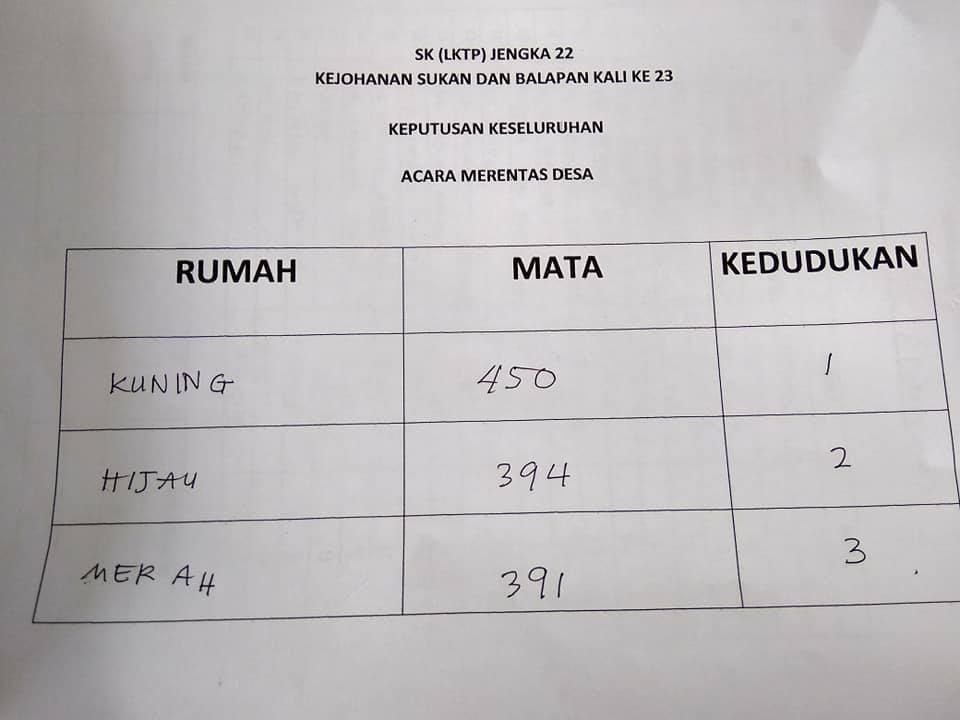 SK (LKTP) JENGKA 22
KEJOHANAN SUKAN DAN BALAPAN KALI KE 23
KEPUTUSAN KESELURUHAN
ACARA MERENTAS DESA
RUMAH MATA KEDUDUKAN
KUNING 450 1
HIJAU 394 2
MERAH 391 3